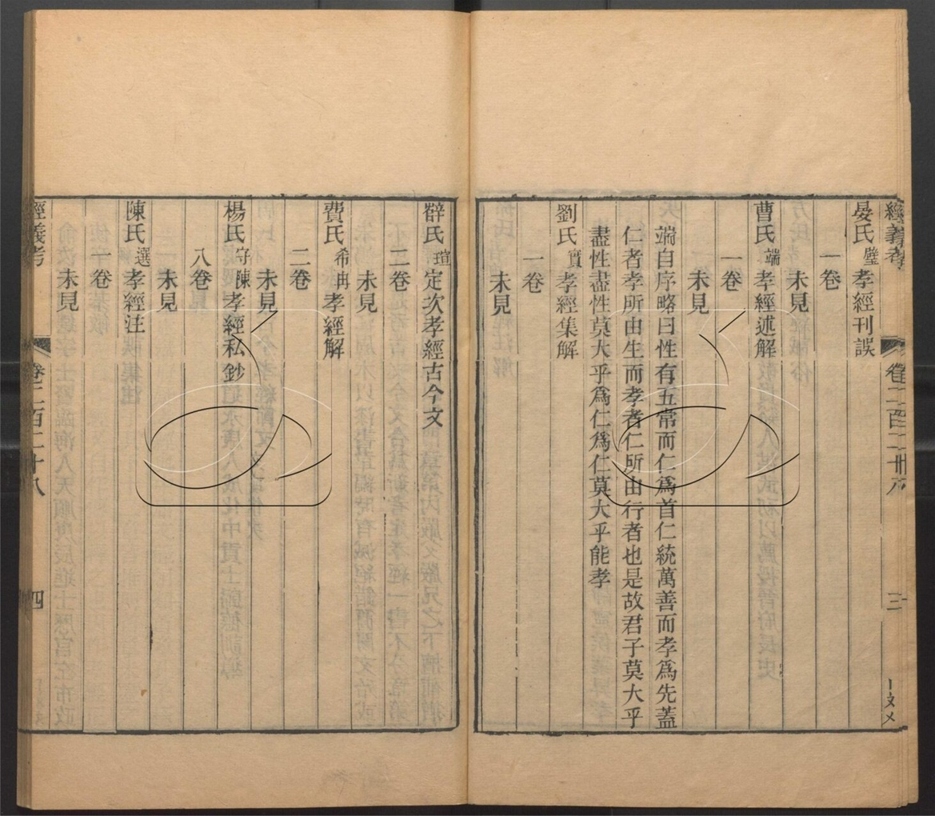 經義考 卷二百二十八 三
晏氏璧孝經刊誤
一卷
未見
曹氏端孝經述解
一卷
未見
端自序略曰性有五常而仁爲首仁統萬善而孝爲先蓋
仁者孝所由生而孝者仁所由行者也是故君子莫大乎
盡性盡性莫大乎爲仁爲仁莫大乎能孝
劉氏實孝經集解
一卷
未見
辥氏瑄定次孝經古今文
二卷
未見
費氏希冉孝經解
二卷
未見
楊氏守陳孝經私鈔
八卷
未見
陳氏選孝經注
一卷
未見
經義考 卷二百二十八 四